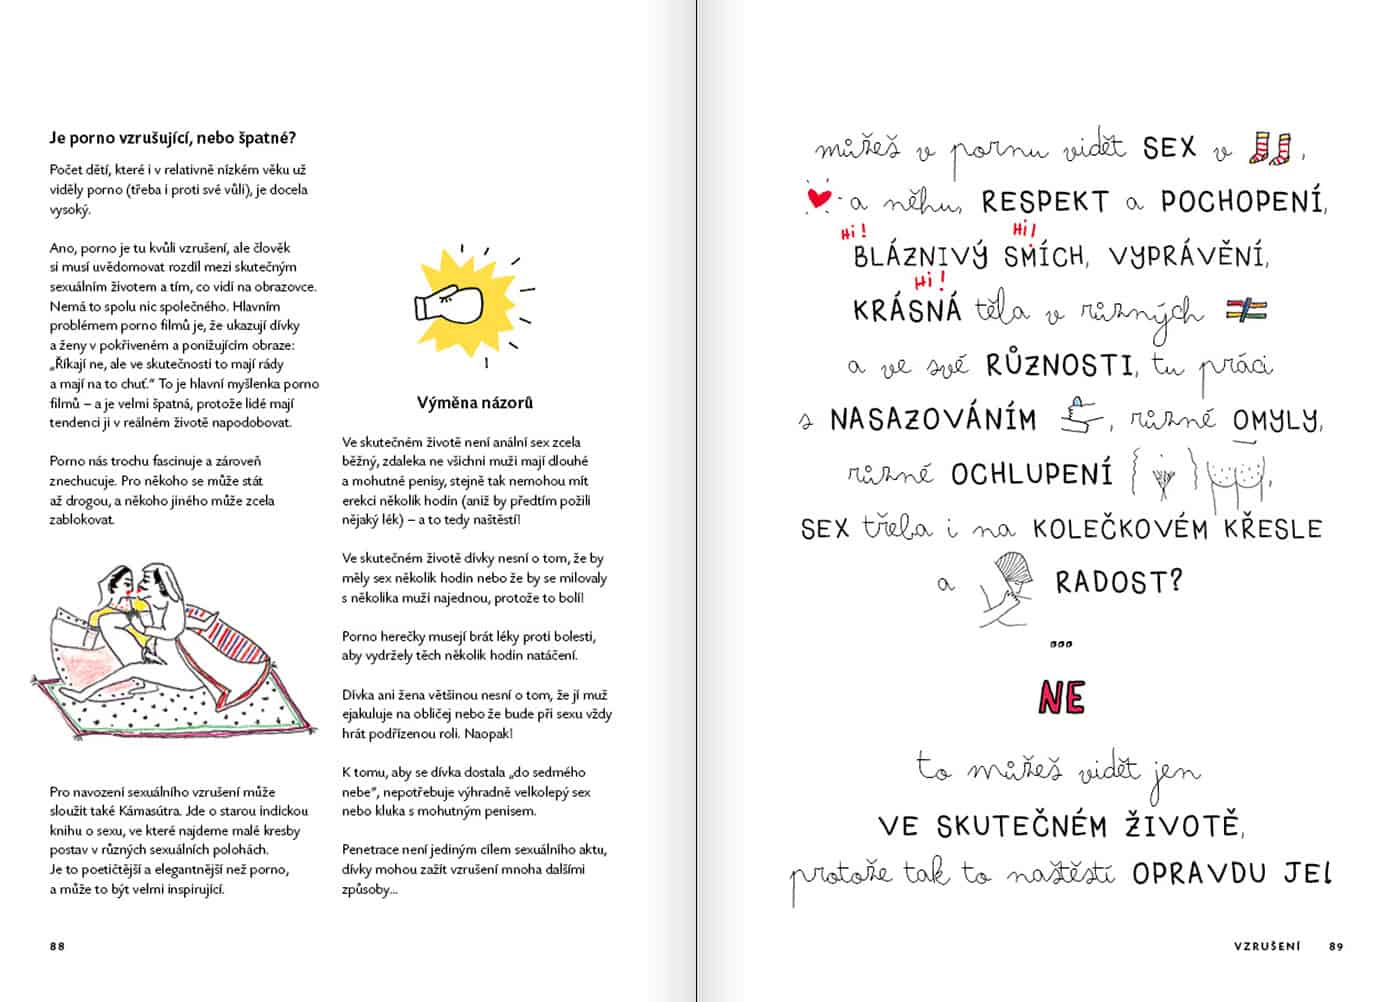 Je porno vzrušující, nebo špatné?
Počet dětí, které i v relativně nízkém věku už
viděly porno (třeba i proti své vůli), je docela
vysoký.
Ano, porno je tu kvůli vzrušení, ale člověk
si musí uvědomovat rozdíl mezi skutečným
sexuálním životem a tím, co vidí na obrazovce.
Nemá to spolu nic společného. Hlavním
problémem porno filmů je, že ukazují dívky
a ženy v pokřiveném a ponižujícím obraze:
„Říkají ne, ale ve skutečnosti to mají rády
a mají na to chuť.“ To je hlavní myšlenka porno
filmů – a je velmi špatná, protože lidé mají
tendenci ji v reálném životě napodobovat.
Porno nás trochu fascinuje a zároveň
znechucuje. Pro někoho se může stát
až drogou, a někoho jiného může zcela
zablokovat.
Pro navození sexuálního vzrušení může
sloužit také Kámasútra. Jde o starou indickou
knihu o sexu, ve které najdeme malé kresby
postav v různých sexuálních polohách.
Je to poetičtější a elegantnější než porno,
a může to být velmi inspirující.
88
Výměna názorů
Ve skutečném životě není anální sex zcela
běžný, zdaleka ne všichni muži mají dlouhé
a mohutné penisy, stejně tak nemohou mít
erekci několik hodin (aniž by předtím požili
nějaký lék) – a to tedy naštěstí!
Ve skutečném životě dívky nesní o tom, že by
měly sex několik hodin nebo že by se milovaly
s několika muži najednou, protože to bolí!
Porno herečky musejí brát léky proti bolesti,
aby vydržely těch několik hodin natáčení.
Dívka ani žena většinou nesní o tom, že jí muž
ejakuluje na obličej nebo že bude při sexu vždy
hrát podřízenou roli. Naopak!
K tomu, aby se dívka dostala „do sedmého
nebe“, nepotřebuje výhradně velkolepý sex
nebo kluka s mohutným penisem.
Penetrace není jediným cílem sexuálního aktu,
dívky mohou zažít vzrušení mnoha dalšími
způsoby...
můžeš v pornu vidět SEX v ,
a něhu, RESPEKT a POCHOPENÍ,
Hi! Hi!
BLÁZNIVÝ SMÍCH, VYPRÁVĚNÍ,
Hi!
KRÁSNÁ těla v různých
a ve své RŮZNOSTI, tu práci
s NASAZOVÁNÍM , různé OMYLY,
různé OCHLUPENÍ ,
SEX třeba i na KOLEČKOVÉM KŘESLE
a RADOST?
...
NE
to můžeš vidět jen
VE SKUTEČNÉM ŽIVOTĚ,
protože tak to naštěstí OPRAVDU JE!
VZRUŠENÍ 89